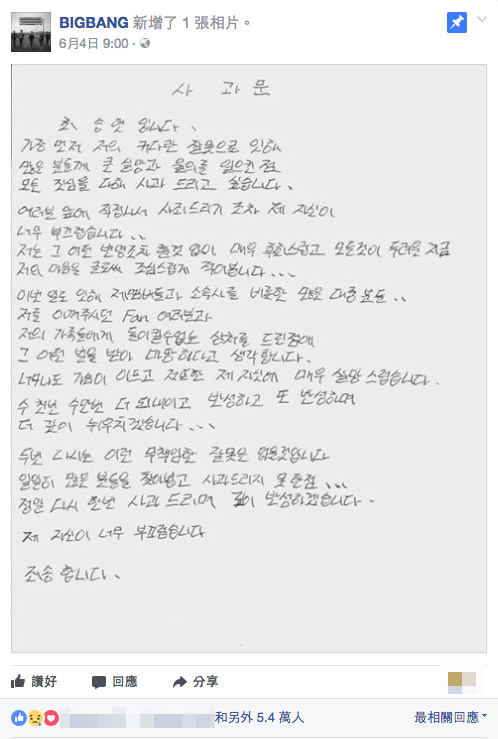 BIGBANG 新增了 1 張相片。
6月4日 9:00 ·
사 과 문
최 승 현 입니다.
가장 먼저 저의 커다란 잘못으로 인해
많은 분들께 큰 실망과 물의를 일으킨 점
모든 진심을 다해 사과 드리고 싶습니다.
여러분 앞에 직접나서 사죄드리기 조차 제 자신이
너무 부끄럽습니다..
저는 그 어떤 변명조차 할것 없이 매우 후회스럽고 모든것이 두려운 지금
저의 마음을 글로써 조심스럽게 적어봅니다...
이번 일로 인해 제멤버들과 소속사를 비롯한 많은 대중 분들..
저를 아껴주시던 Fan 여러분과
저의 가족들에게 돌이킬수없는 상처를 드린점에
그 어떤 벌을 받아 마땅하다고 생각합니다.
너무나도 가슴이 아프고 저또한 제 자신에 매우 실망 스럽습니다.
수 천번 수만번 더 되뇌이고 반성하고 또 반성하며
더 깊이 뉘우치겠습니다...
두번 다시는 이런 무책임한 잘못은 없을것입니다
일일히 많은 분들을 찾아뵙고 사과드리지 못한점...
정말 다시 한번 사과 드리며 깊이 반성하겠습니다.
제 자신이 너무 부끄럽습니다
죄송 합니다.
讚好 回應 分享
和另外 5.4 萬人 最相關回應